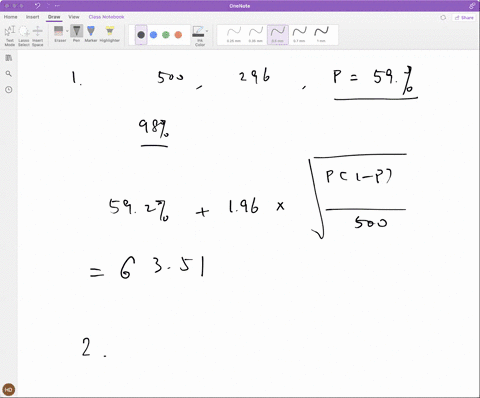 OneNote
Home Insert Draw View Class Notebook
Text Mode Lasso Select Insert Space Eraser Pen Marker Highlighter Ink Color 0.25 mm 0.35 mm 0.5 mm 0.7 mm 1 mm
1. 500, 296, P = 59.%
98%
59.2% + 1.96 × √(P(1-P)/500)
= 63.51
2.
HD